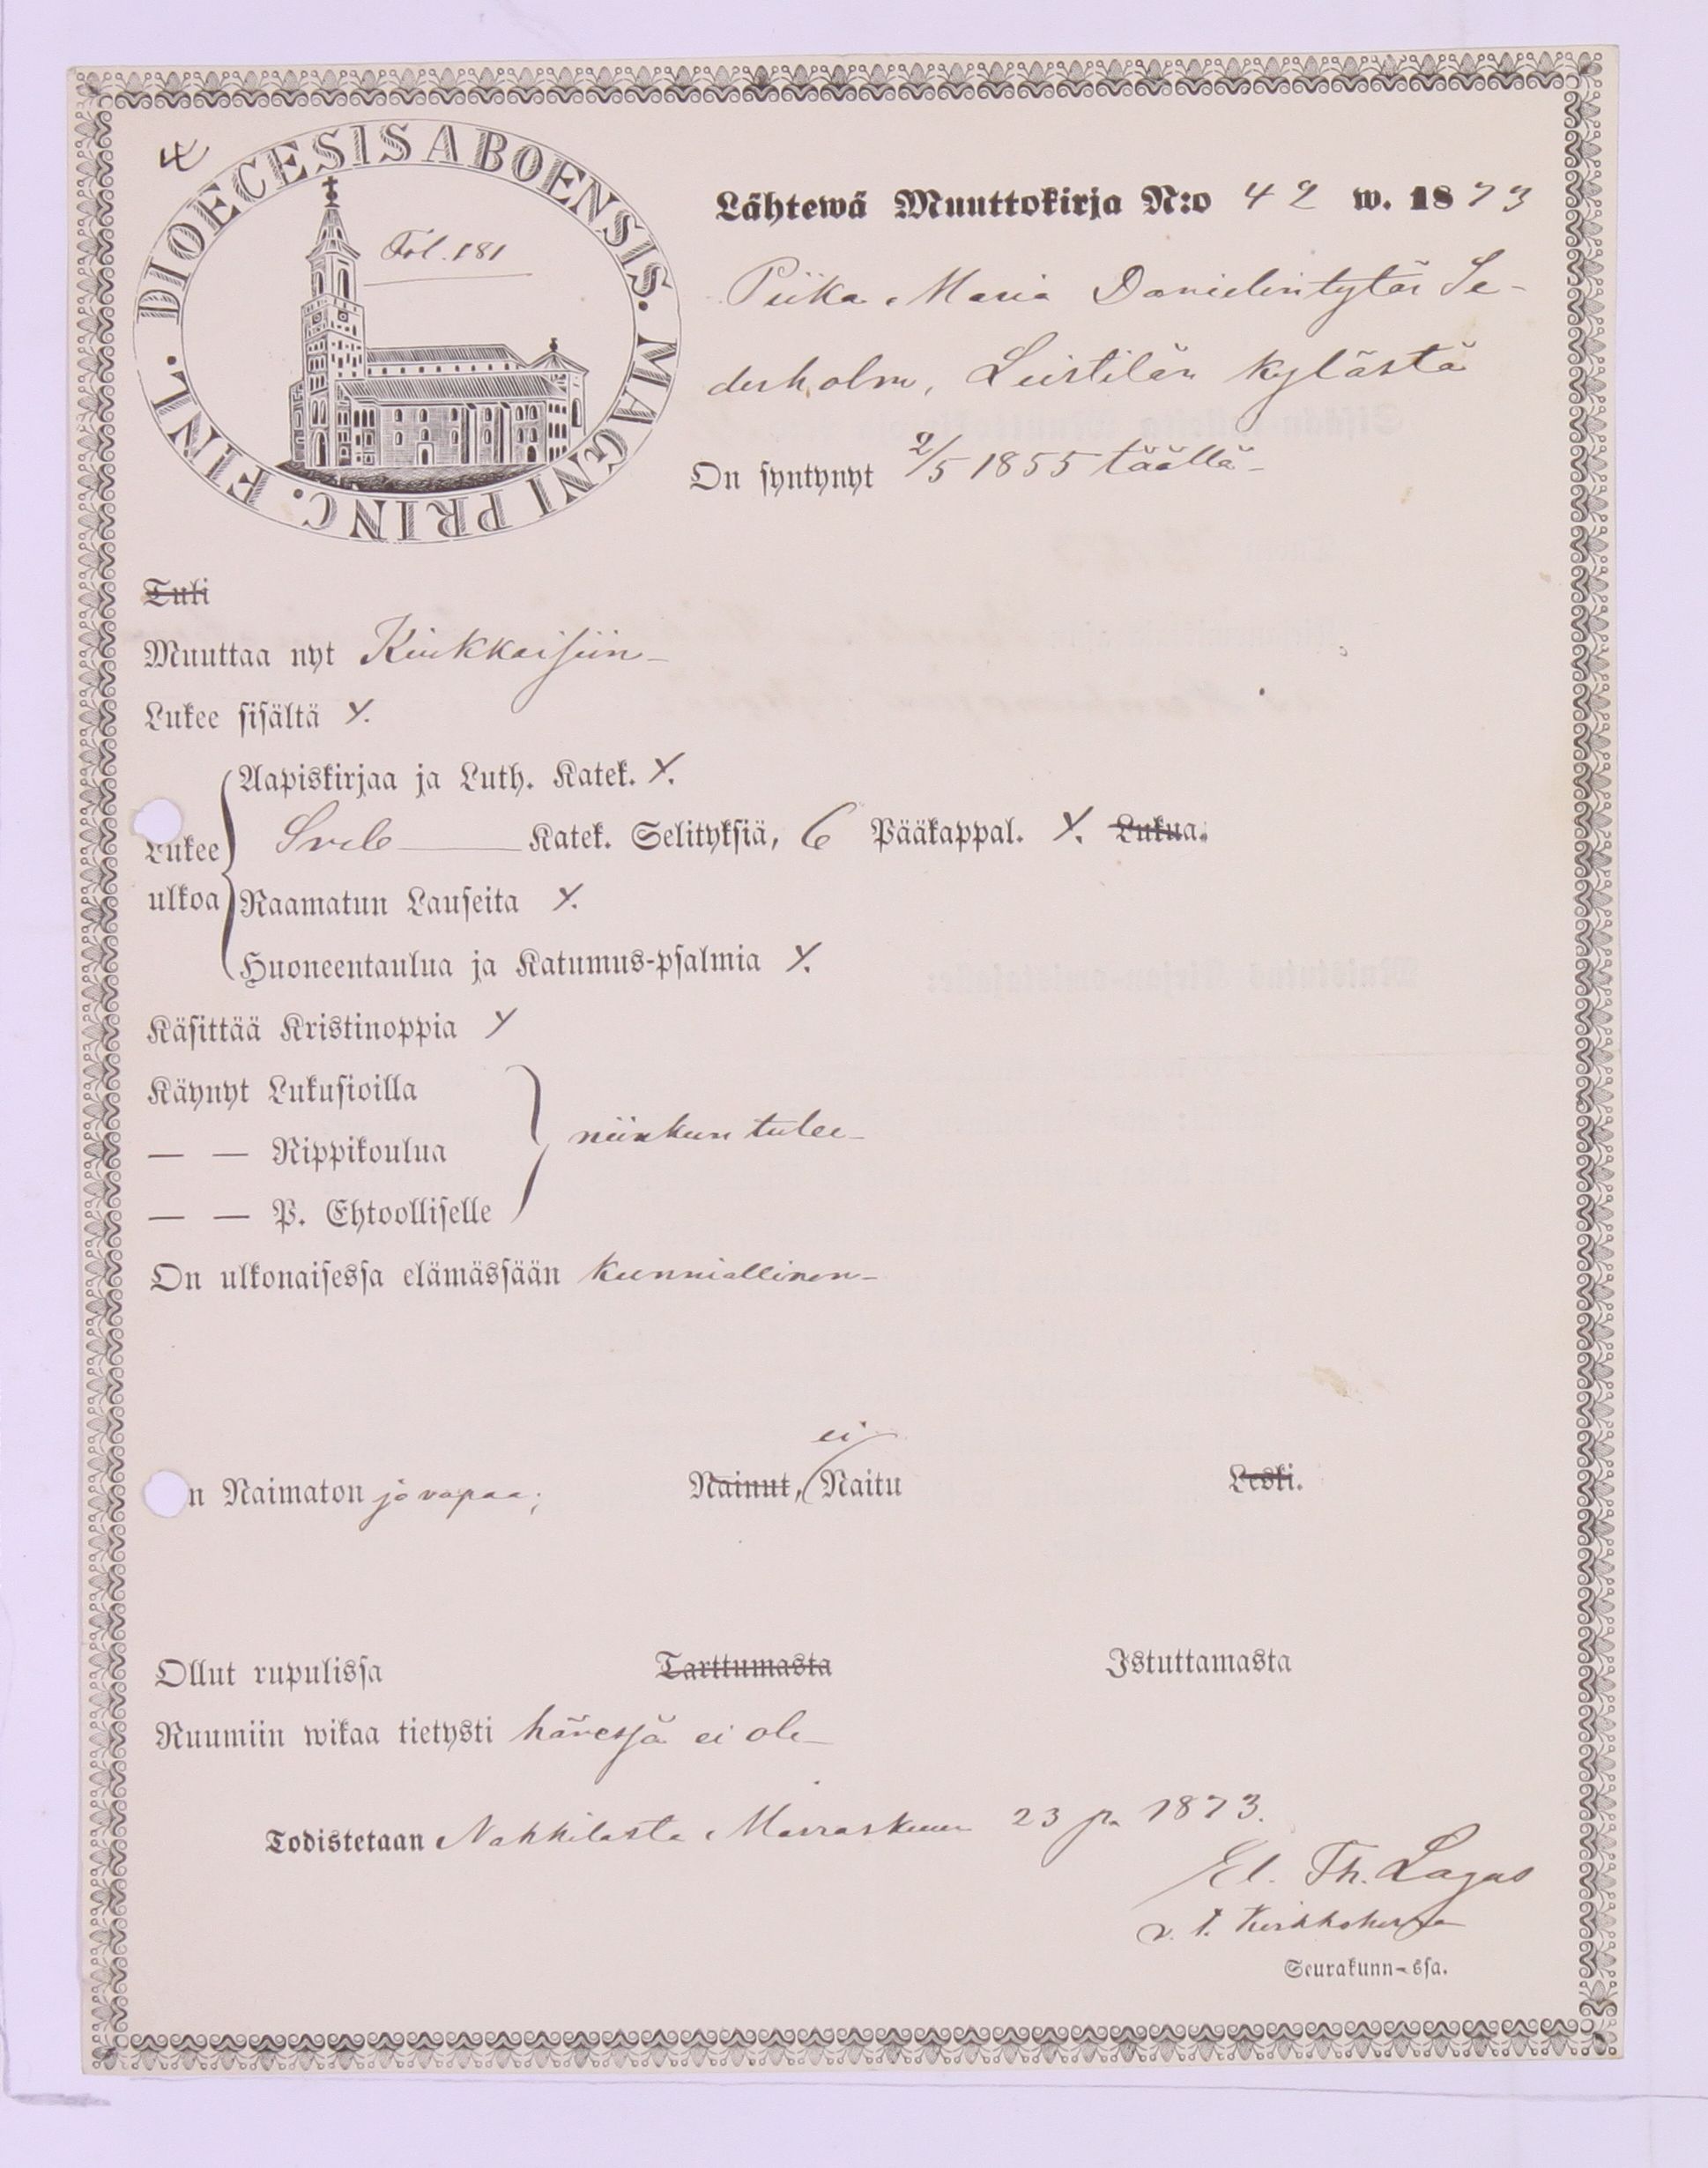 4
DIOECESIS ABOENSIS. MAGNI PRINC. FINL.
Fol. 181
Lähtewä Muuttokirja N:o 42 w. 1873
Piika Maria Danielintytär Se-
derholm, Leistilän kylästä
On syntynyt 2/5 1855 täällä
Tuli
Muuttaa nyt Kiukkaisiin
Lukee sisältä x.
Lukee ulkoa
Aapiskirjaa ja Luth. Katek. x.
Sveb Katek. Selityksiä, 6 Pääkappal. x. Lukua.
Raamatun Lauseita x.
Huoneentaulua ja Katumus-psalmia x.
Käsittää Kristinoppia x
Käynyt Lukusioilla
— — Rippikoulua
niinkuin tulee
— — P. Ehtoolliselle
On ulkonaisessa elämässään kunniallinen
n Naimaton ja vapaa; Nainut, ei Naitu Leski.
Ollut rupulissa Tarttumasta Istuttamasta
Ruumiin wikaa tietysti hänessä ei ole
Todistetaan Nakkilasta Marraskuun 23 p. 1873.
El. Th. Lagus
v. t. Kirkkoherra
Seurakunn-ssa.